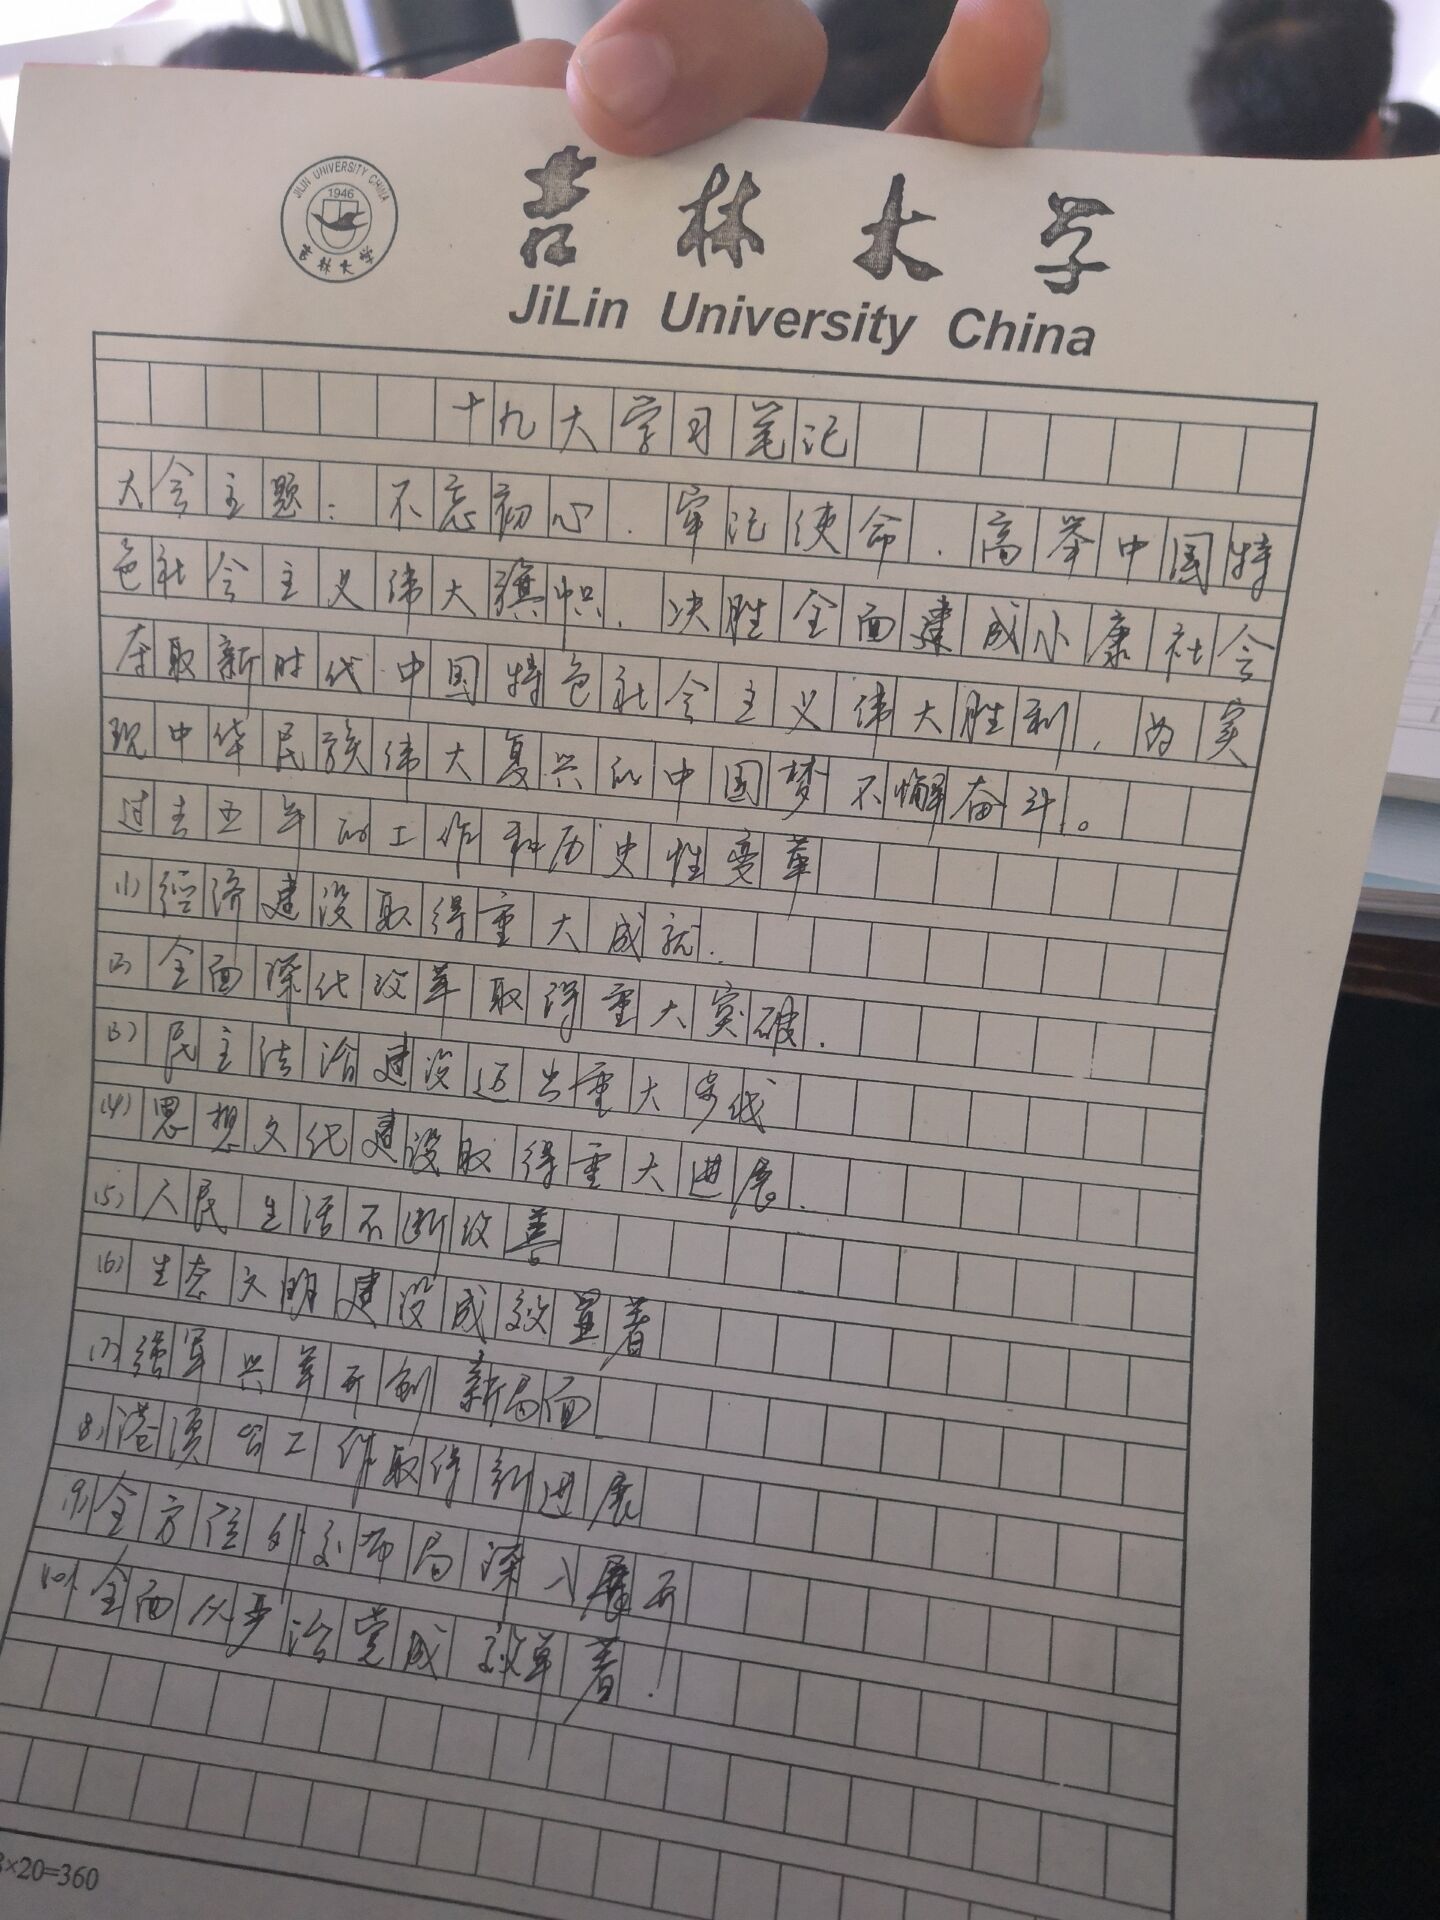 JILIN UNIVERSITY CHINA
1946
吉林大学
吉林大学
JiLin University China
十九大学习笔记
大会主题：不忘初心，牢记使命，高举中国特
色社会主义伟大旗帜，决胜全面建成小康社会
夺取新时代中国特色社会主义伟大胜利，为实
现中华民族伟大复兴的中国梦不懈奋斗。
过去五年的工作和历史性变革
(1)经济建设取得重大成就.
(2)全面深化改革取得重大突破.
(3)民主法治建设迈出重大步伐
(4)思想文化建设取得重大进展.
(5)人民生活不断改善
(6)生态文明建设成效显著
(7)强军兴军开创新局面
(8)港澳台工作取得新进展
(9)全方位外交布局深入展开
(10)全面从严治党成效卓著!
×20=360